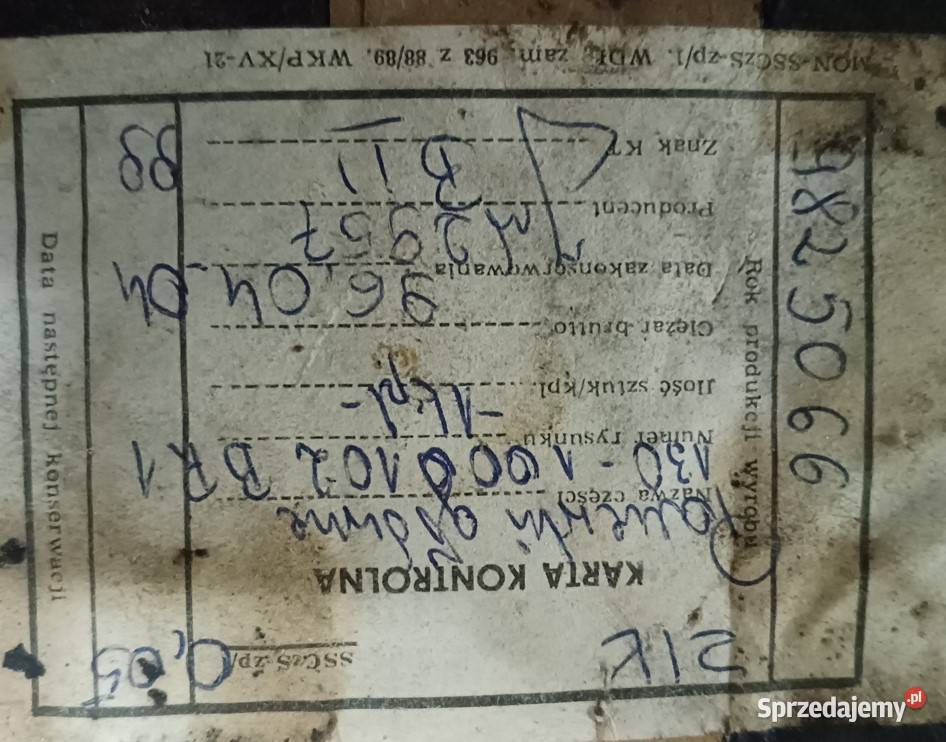 ZIK
SSCzS-zp/
0,05
KARTA KONTROLNA
Panewki główne
Nazwa części
130-1000102 BR1
Numer rysunku
-1kpl-
Ilość sztuk/kpl.
Ciężar brutto
96.04.04
Data zakonserwowania
M2957
Producent
B II
99
Znak KT
Rok produkcji wyrobu
9825066
Data następnej konserwacji
MON-SSCzS-zp/1. WDK zam. 963 z 88/89. WKP/XV-21
Sprzedajemy.pl